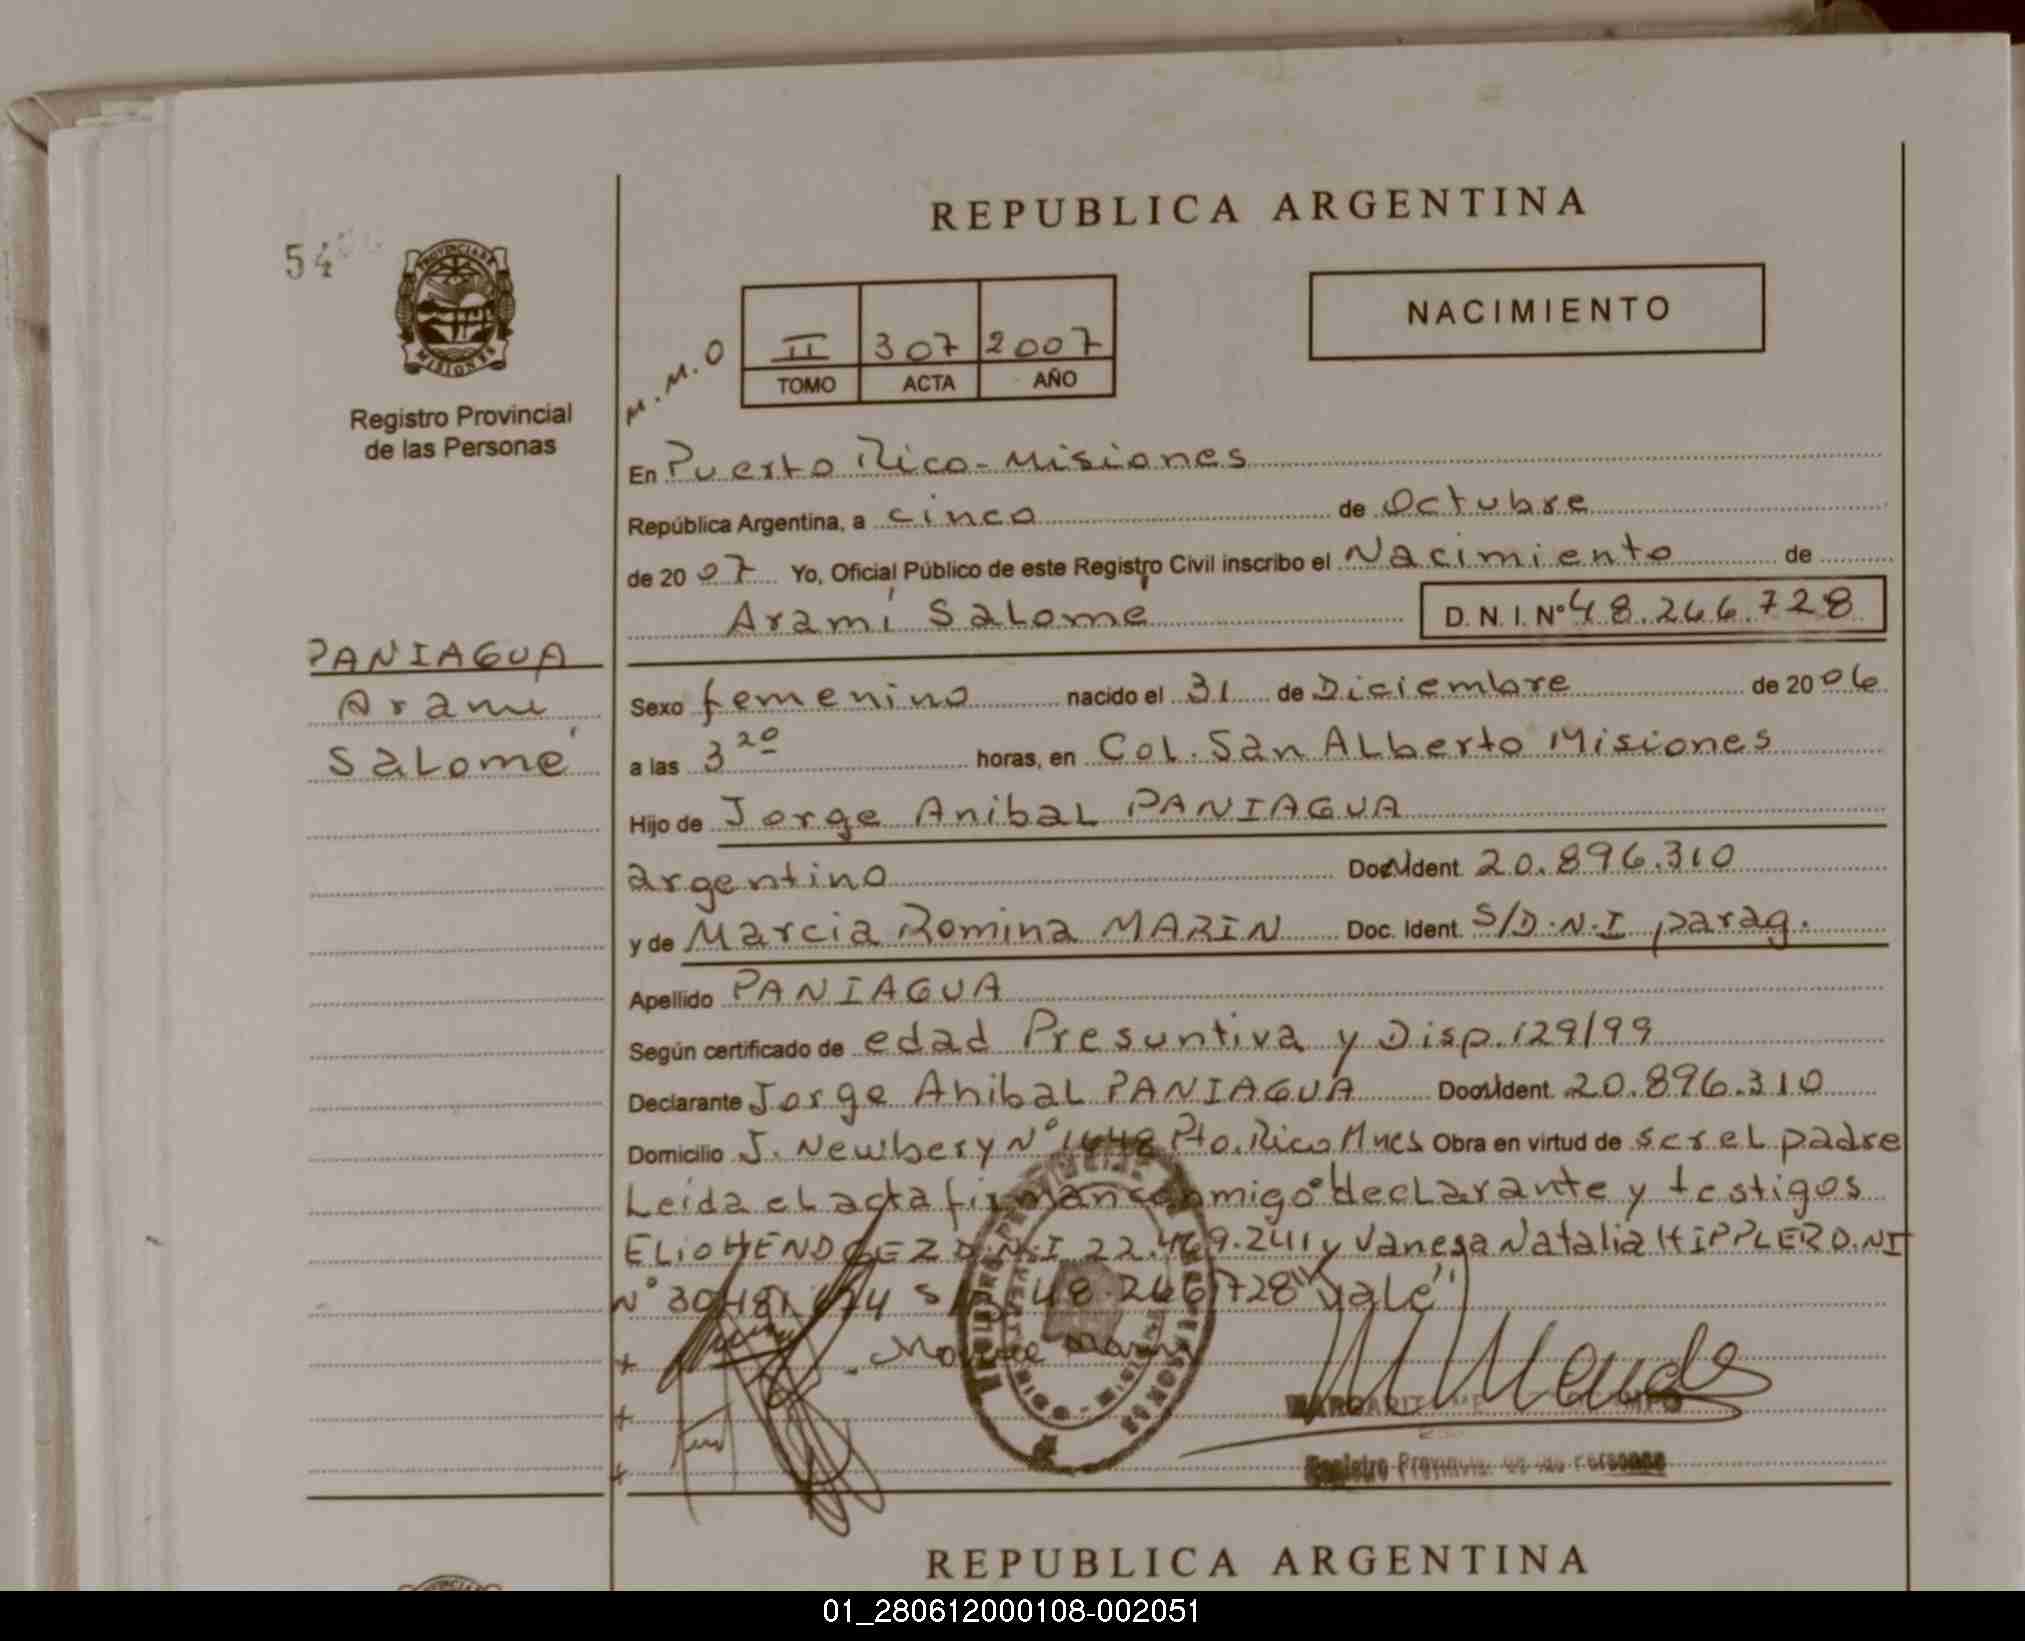 REPUBLICA ARGENTINA
54
PROVINCIA DE
MISIONES
Registro Provincial
de las Personas
M.M.O
II 307 2007
TOMO ACTA AÑO
NACIMIENTO
En Puerto Rico - Misiones
República Argentina, a cinco de Octubre
de 2007 Yo, Oficial Público de este Registro Civil inscribo el Nacimiento de
Aramí Salomé D. N. I. Nº 48.266.728
PANIAGUA
Arami
Salomé
Sexo femenino nacido el 31 de Diciembre de 2006
a las 3 20 horas, en Col. San Alberto Misiones
Hijo de Jorge Anibal PANIAGUA
argentino Ident. 20.896.310
y de Marcia Romina MARIN Doc. Ident. S/D.N.I parag.
Apellido PANIAGUA
Según certificado de edad Presuntiva y Disp. 129/99
Declarante Jorge Anibal PANIAGUA Ident. 20.896.310
Domicilio J. Newbery Nº 1648 Pto. Rico Mnes Obra en virtud de ser el padre
Leída el acta firman conmigo declarante y testigos
ELio D.N.I 22.469.241 y Vanesa Natalia HIPPLER D.NI
Nº 48.266.728 "Vale"
Registro Provincial de las Personas
REPUBLICA ARGENTINA
01_280612000108-002051